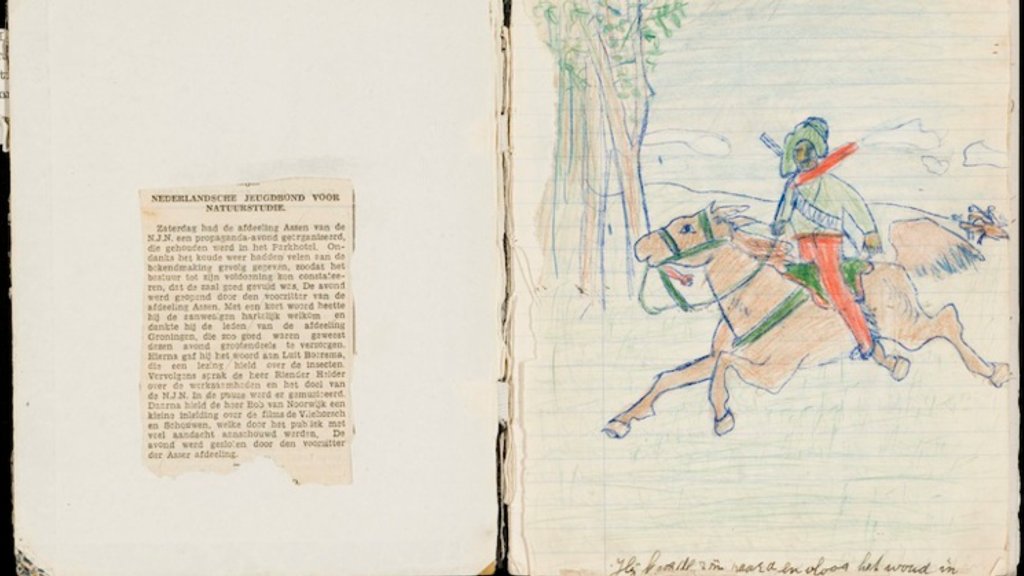 NEDERLANDSCHE JEUGDBOND VOOR
NATUURSTUDIE.
Zaterdag had de afdeeling Assen van de
N.J.N. een propaganda-avond georganiseerd,
die gehouden werd in het Parkhotel. On-
danks het koude weer hadden velen aan de
bekendmaking gevolg gegeven, zoodat het
bestuur tot zijn voldoening kon constatee-
ren, dat de zaal goed gevuld was. De avond
werd geopend door den voorzitter van de
afdeeling Assen. Met een kort woord heette
hij de aanwezigen hartelijk welkom en
dankte hij de leden van de afdeeling
Groningen, die zoo goed waren geweest
dezen avond grootendeels te verzorgen.
Hierna gaf hij het woord aan Luit
die een lezing hield over de insecten.
Vervolgens sprak de heer Riender Helder
over de werkzaamheden en het doel van
de N.J.N. In de pauze werd er gemusiceerd.
Daarna hield de heer Bob van Noorwijk een
kleine inleiding over de films de
en Schouwen, welke door het publiek met
veel aandacht aanschouwd werden. De
avond werd gesloten door den voorzitter
der Asser afdeeling.
Hij zijn paard en vloog het woud in